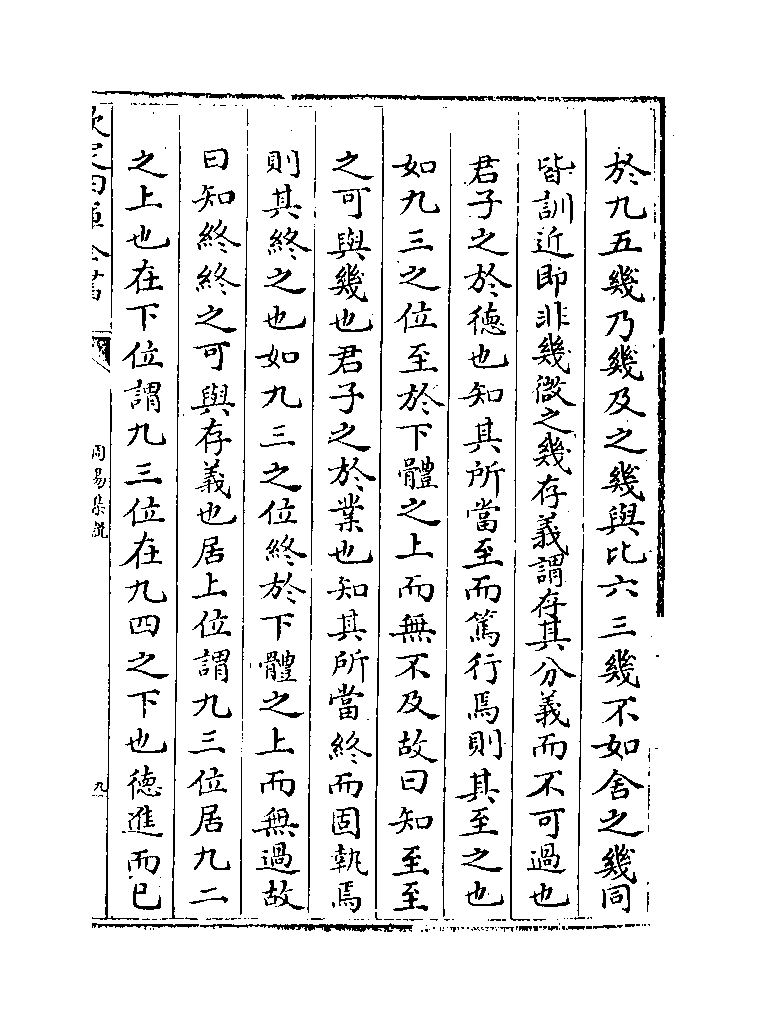 於九五幾乃幾及之幾與比六三幾不如舍之幾同
皆訓近即非幾微之幾存義謂存其分義而不可過也
君子之於德也知其所當至而篤行焉則其至之也
如九三之位至於下體之上而無不及故曰知至至
之可與幾也君子之於業也知其所當終而固執焉
則其終之也如九三之位終於下體之上而無過故
曰知終終之可與存義也居上位謂九三位居九二
之上也在下位謂九三位在九四之下也德進而已
欽定四庫全書
周易集說
九